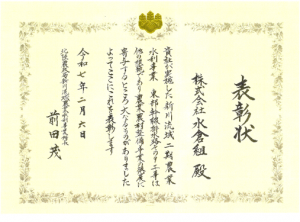 表彰状
株式会社 水倉組 殿
貴社が実施した新川流域二期農業
水利事業 東部幹線排水路その工事は
他の模範であり農業農村整備事業の発展に
寄与するところ大なるものがありました
よってここにこれを表彰します
令和七年二月六日
北陸農政局新川流域農業水利事業所長
前田 茂